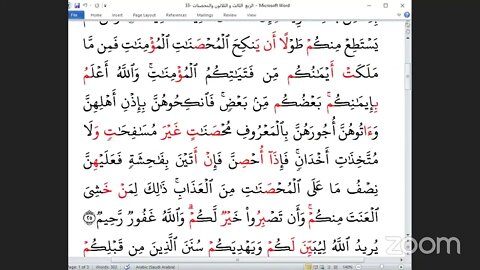 الربع الثالث و الثلاثون والمحصنات -33 - Microsoft Word
Home Insert Page Layout References Mailings Review View Add-Ins
يَسۡتَطِعۡ مِنكُمۡ طَوۡلًا أَن يَنكِحَ ٱلۡمُحۡصَنَٰتِ ٱلۡمُؤۡمِنَٰتِ فَمِن مَّا
مَلَكَتۡ أَيۡمَٰنُكُم مِّن فَتَيَٰتِكُمُ ٱلۡمُؤۡمِنَٰتِۚ وَٱللَّهُ أَعۡلَمُ
بِإِيمَٰنِكُمۚ بَعۡضُكُم مِّنۢ بَعۡضٖۚ فَٱنكِحُوهُنَّ بِإِذۡنِ أَهۡلِهِنَّ
وَءَاتُوهُنَّ أُجُورَهُنَّ بِٱلۡمَعۡرُوفِ مُحۡصَنَٰتٍ غَيۡرَ مُسَٰفِحَٰتٖ وَلَا
مُتَّخِذَٰتِ أَخۡدَانٖۚ فَإِذَآ أُحۡصِنَّ فَإِنۡ أَتَيۡنَ بِفَٰحِشَةٖ فَعَلَيۡهِنَّ
نِصۡفُ مَا عَلَى ٱلۡمُحۡصَنَٰتِ مِنَ ٱلۡعَذَابِۚ ذَٰلِكَ لِمَنۡ خَشِيَ
ٱلۡعَنَتَ مِنكُمۡۚ وَأَن تَصۡبِرُواْ خَيۡرٞ لَّكُمۡۗ وَٱللَّهُ غَفُورٞ رَّحِيمٞ ٢٥
يُرِيدُ ٱللَّهُ لِيُبَيِّنَ لَكُمۡ وَيَهۡدِيَكُمۡ سُنَنَ ٱلَّذِينَ مِن قَبۡلِكُمۡ
zoom
Page: 1 of 3 Words: 302 Arabic (Saudi Arabia) 140%